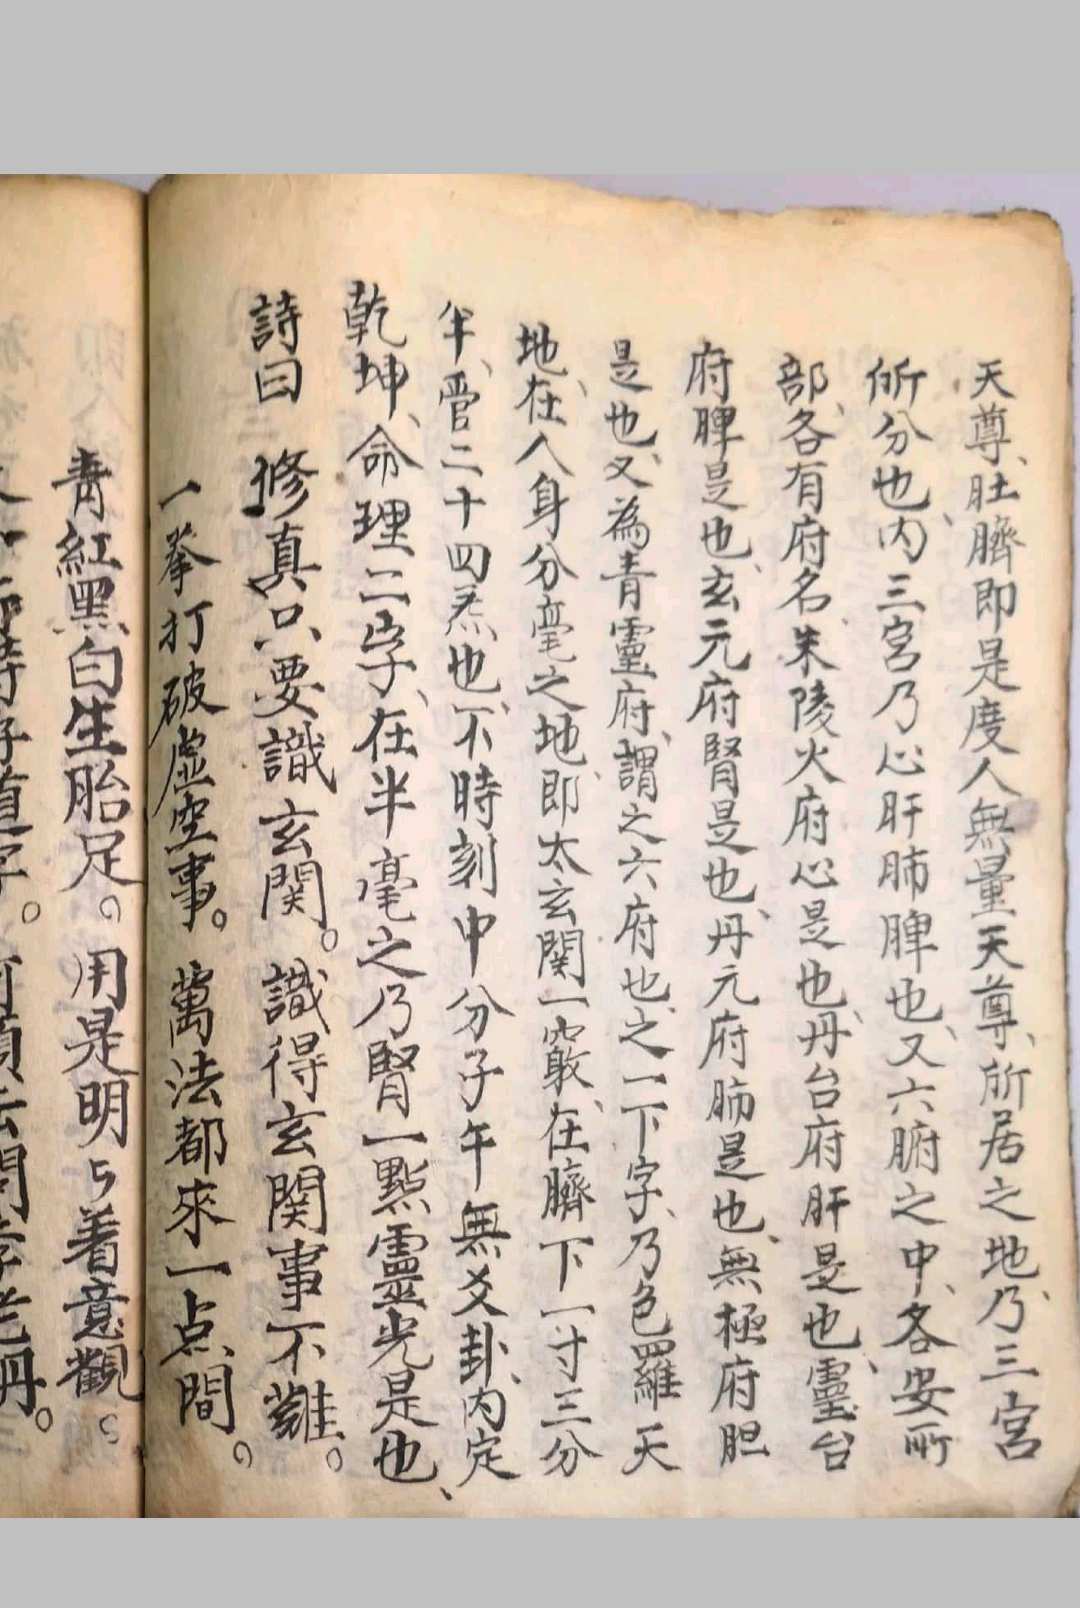 天尊、肚臍即是度人無量天尊、所居之地、乃三宮
所分也、内三宮乃心肝肺脾也、又六腑之中、各安所
部、各有府名、朱陵火府心是也、丹台府肝是也、靈台
府脾是也、玄元府腎是也、丹元府肺是也、無極府胆
是也、又為青靈府、謂之六府也、之一下字、乃色羅天
地、在人身分毫之地、即太玄関一竅、在臍下一寸三分
半、管二十四炁也、不時刻中分子午無爻卦、内定
乾坤、命理二字、在半毫之乃腎一點靈光是也、
詩曰 修真只要識玄関。識得玄関事不難。
一拳打破虚空事。萬法都來一点間。
青紅黑白生胎足。用是明々着意觀。